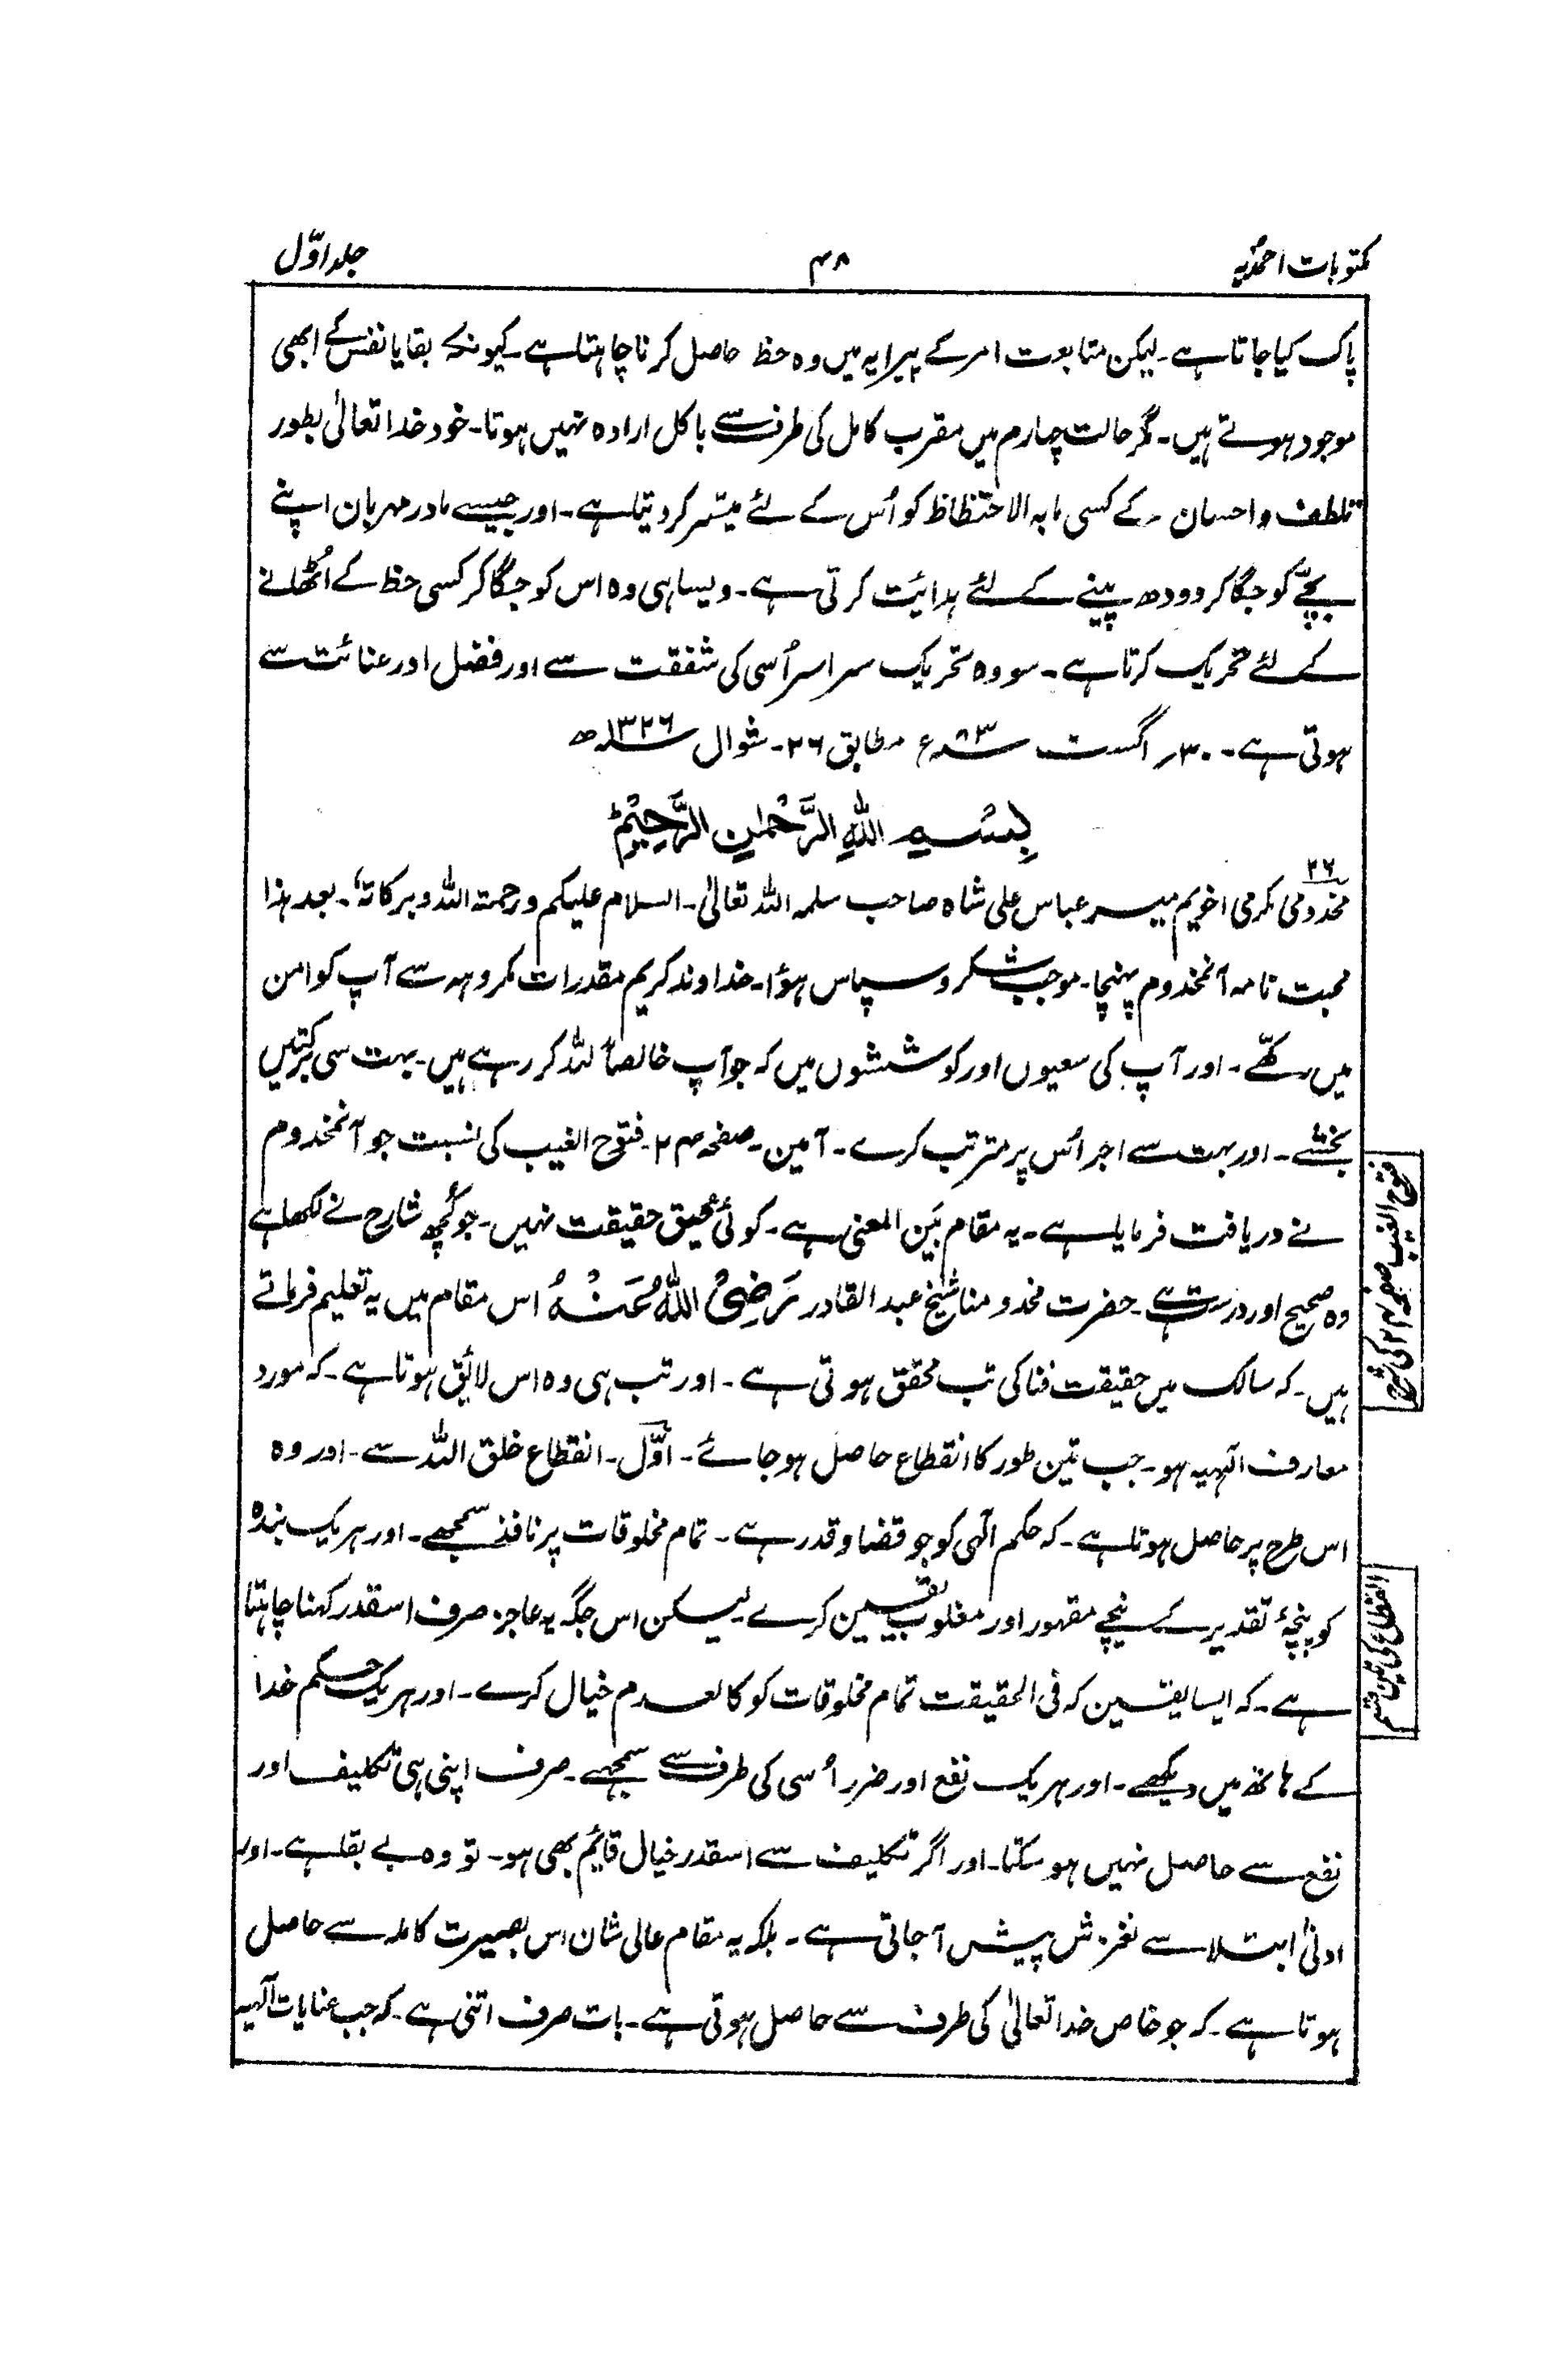 مکتوبات احمدیہ ۴۸ جلد اوّل
پاک کیا جاتا ہے۔ لیکن متابعت امر کے پیرایہ میں وہ حظ حاصل کرنا چاہتا ہے۔ کیونکہ بقایا نفس کے ابھی
موجود ہوتے ہیں۔ مگر حالت چہارم میں مقرب کامل کی طرف سے بالکل ارادہ نہیں ہوتا۔ خود خدا تعالیٰ بطور
تلطف و احسان۔ کے کسی مابہ الاحتظاظ کو اُس کے لئے میسّر کر دیتا ہے۔ اور جیسے مادر مہربان اپنے
بچّے کو جگا کر دودھ پینے کے لئے ہدائیت کرتی ہے۔ ویسا ہی وہ اس کو جگا کر کسی حظ کے اُٹھانے
کے لئے تحریک کرتا ہے۔ سو وہ تحریک سراسر اُسی کی شفقت سے اور فضل اور عنائت سے
ہوتی ہے۔ ۳۰؍ اگست ۸۳ء مطابق ۲۶۔ شوال ۱۳۲۶ھ
بِسْمِ اللهِ الرَّحْمٰنِ الرَّحِيْمِ
۲۶
مخدومی مکرمی اخویم میر عباس علی شاہ صاحب سلمہ اللہ تعالیٰ۔ السلام علیکم ورحمتہ اللہ وبرکاتہٗ۔ بعد ہذا
محبت نامہ آنمخدوم پہنچا۔ موجب شکر و سپاس ہوُا۔ خداوند کریم مقدرات مکروہہ سے آپ کو امن
میں رکھّے۔ اور آپ کی سعیوں اور کوششوں میں کہ جو آپ خالصاً للہ کر رہے ہیں۔ بہت سی برکتیں
بخشے۔ اور بہت سے اجر اُس پر مترتب کرے۔ آمین۔ صفحہ ۲۴۔ فتوح الغیب کی نسبت جو آنمخدوم
نے دریافت فرمایا ہے۔ یہ مقام بیّن المعنی ہے۔ کوئی عمیق حقیقت نہیں۔ جو کُچھ شارح نے لکھا ہے
وہ صحیح اور درست ہے۔ حضرت مخدومنا شیخ عبد القادر رَضِیَ اللّٰهُ عَنْهُ اس مقام میں یہ تعلیم فرماتے
ہیں۔ کہ سالک میں حقیقت فنا کی تب محقق ہوتی ہے۔ اور تب ہی وہ اس لائیق ہوتا ہے۔ کہ مورد
معارف الٰہیہ ہو۔ جب تین طور کا انقطاع حاصل ہو جائے۔ اوّل۔ انقطاع خلق اللہ سے۔ اور وہ
اس طرح پر حاصل ہوتا ہے۔ کہ حکم الٰہی کو جو قضا و قدر ہے۔ تمام مخلوقات پر نافذ سمجھے۔ اور ہریک بندہ
کو پنجۂ تقدیر کے نیچے مقہور اور مغلوب یقین کرے لیکن اس جگہ یہ عاجز صرف اسقدر کہنا چاہتا
ہے۔ کہ ایسا یقین کہ فی الحقیقت تمام مخلوقات کو کالعدم خیال کرے۔ اور ہریک حکم خدا
کے ہاتھ میں دیکھے۔ اور ہریک نفع اور ضرر اُسی کی طرف سے سمجھے۔ صرف اپنی ہی تکلیف اور
نفع سے حاصل نہیں ہو سکتا۔ اور اگر تکلیف سے اسقدر خیال قایٔم بھی ہو۔ تو وہ بے بقا ہے۔ اور
ادنیٰ ابتلا سے لغزش پیش آ جاتی ہے۔ بلکہ یہ مقام عالی شان اس بصیرت کاملہ سے حاصل
ہوتا ہے۔ کہ جو خاص خدا تعالیٰ کی طرف سے حاصل ہوتی ہے۔ بات صرف اتنی ہے۔ کہ جب عنایات الٰہیہ
فتوح الغیب صفحہ ۲۴ کی شرح
انقطاع کی تین قسم